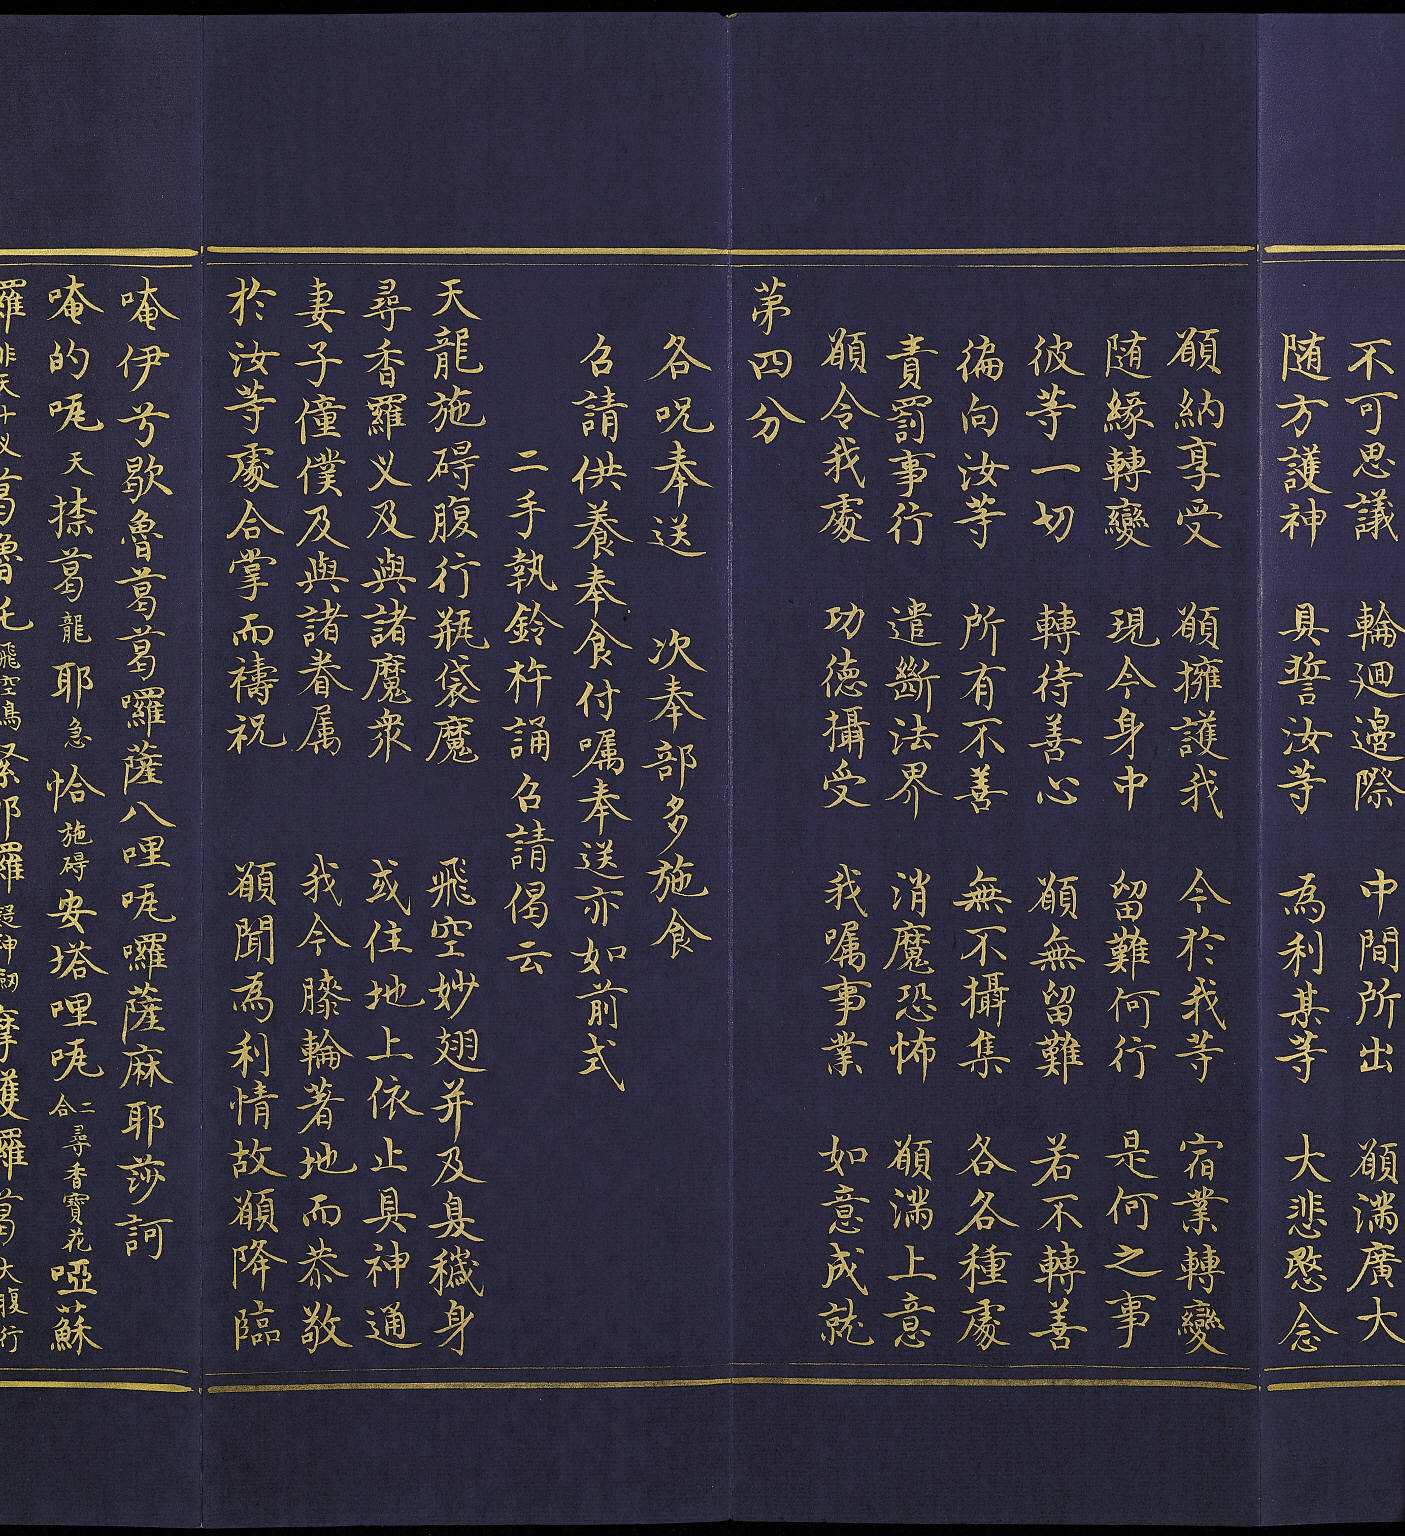 不可思議　輪迴邊際　中間所出　願滿廣大
随方護神　具誓汝等　為利某等　大悲愍念
願納享受　願擁護我　今於我等　宿業轉變
随緣轉變　現今身中　留難何行　是何之事
彼等一切　轉待善心　願無留難　若不轉善
徧向汝等　所有不善　無不攝集　各各種處
責罰事行　遣斷法界　消魔恐怖　願滿上意
願令我處　功德攝受　我嘱事業　如意成就
苐四分
各呪奉送　次奉部多施食
召請供養奉食付嘱奉送亦如前式
二手執鈴杵誦召請偈云
天龍施碍腹行瓶袋魔　飛空妙翅并及臭穢身
尋香羅义及與諸魔衆　或住地上依止具神通
妻子僮僕及與諸眷属　我今膝輪著地而恭敬
於汝等處合掌而禱祝　願聞為利情故願降臨
唵伊兮歇魯葛葛囉薩八哩㖿囉薩麻耶莎訶
唵的㖿天捺葛龍耶急恰施碍安塔哩㖿二合尋香寶花啞蘇
羅非天葛魯飛空鳥緊耶羅摩護羅葛大腹行